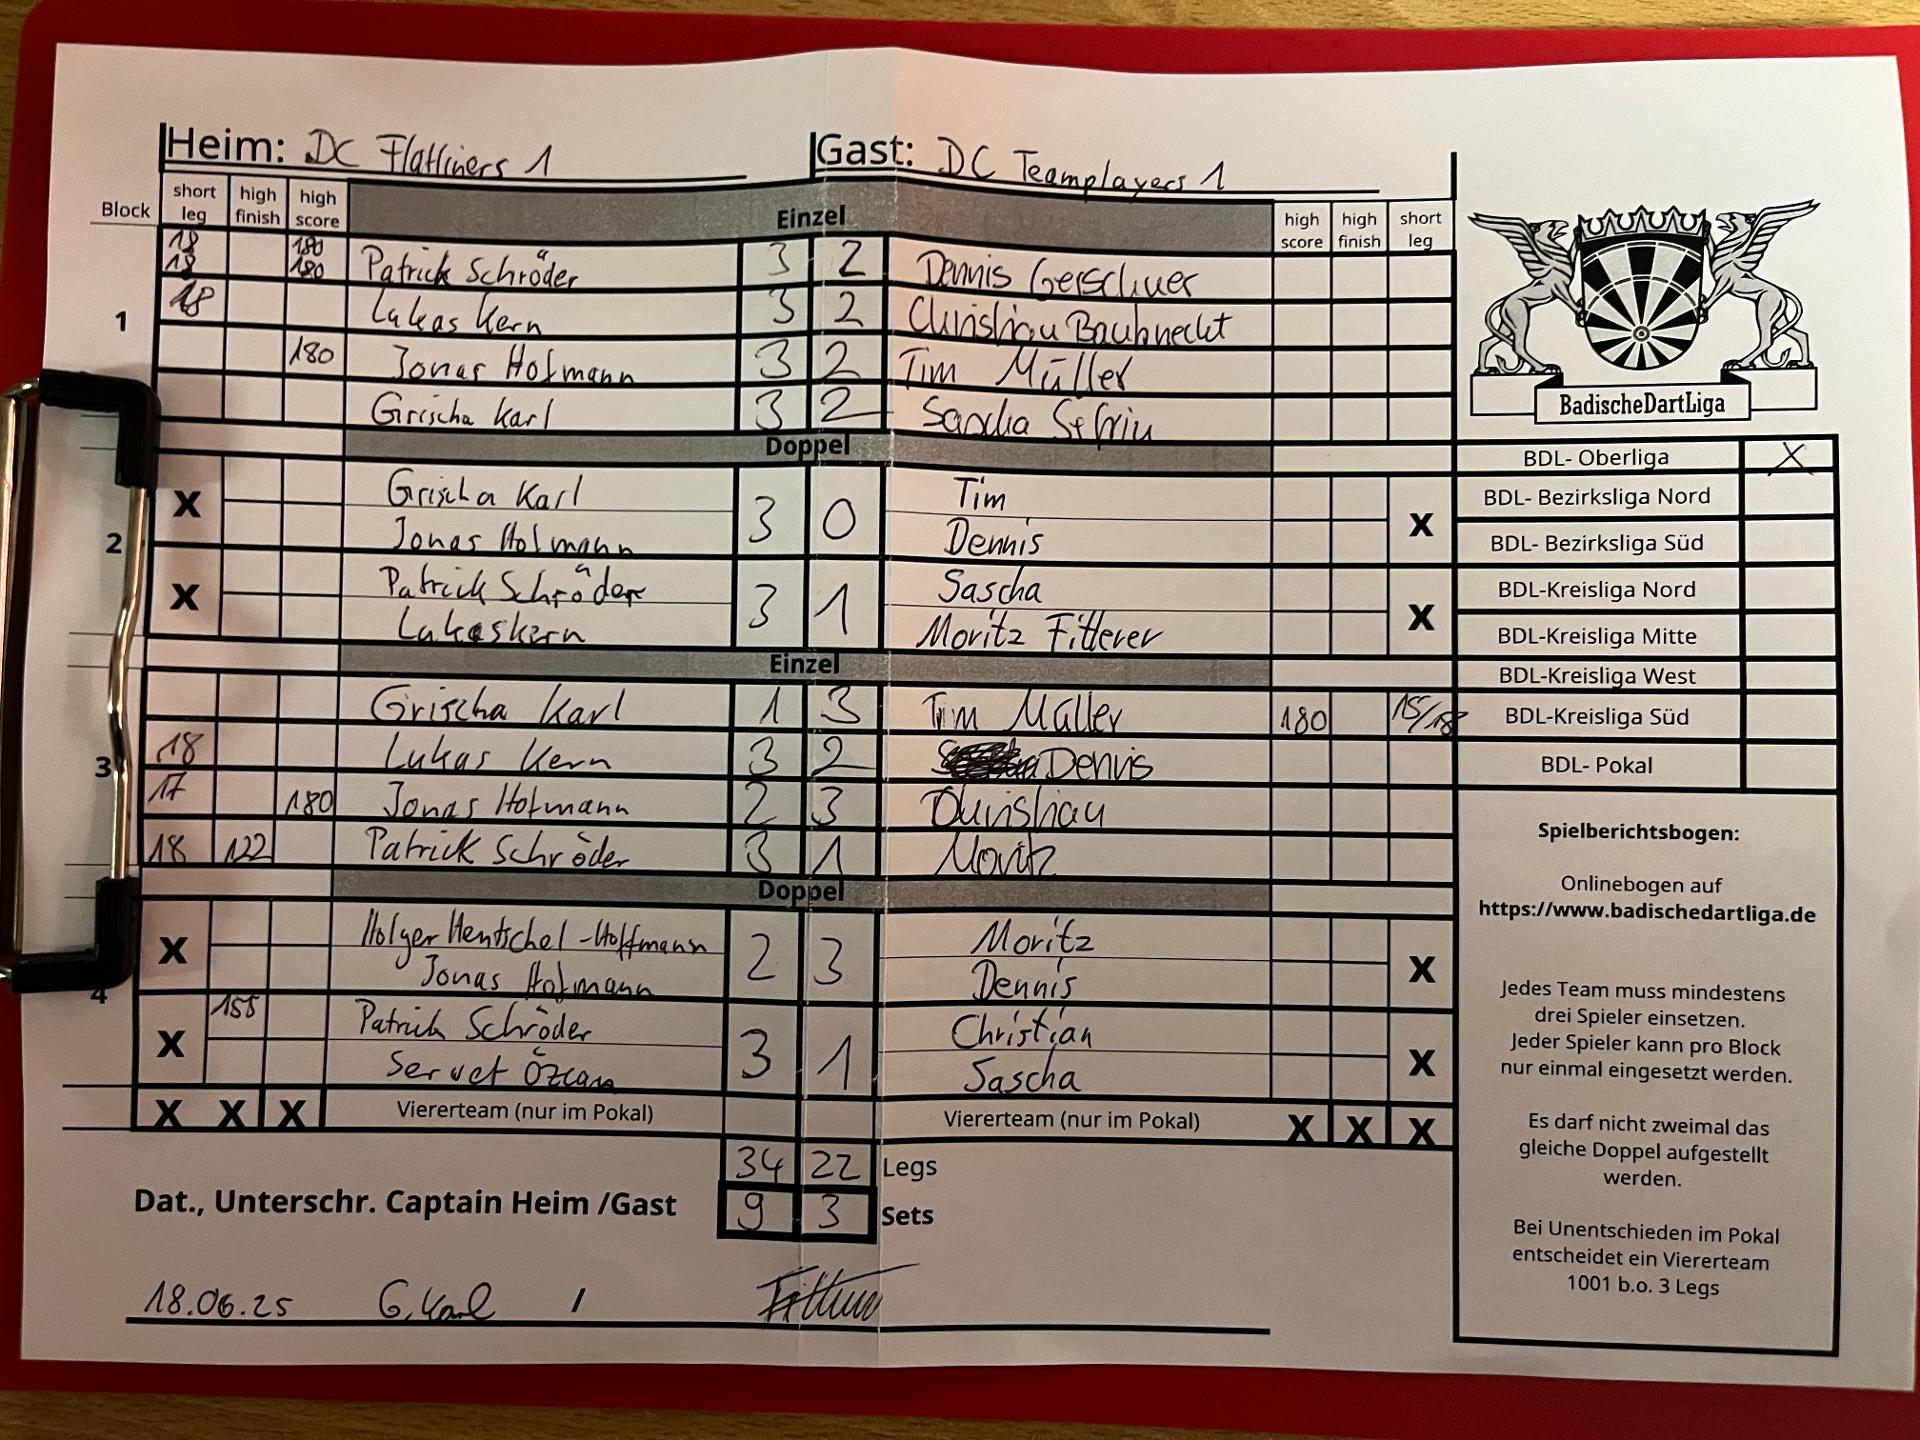 Heim: DC Flatliners 1 Gast: DC Teamplayers 1
Block short leg high finish high score Einzel high score high finish short leg
18 18 180 180 Patrick Schröder 3 2 Dennis Gerschuer
1 18 Lukas Kern 3 2 Christian Bauknecht
180 Jonas Hofmann 3 2 Tim Müller
Grischa Karl 3 2 Sascha Sefrin
BadischeDartLiga
Doppel
2 X Grischa Karl 3 0 Tim X
Jonas Hofmann Dennis
X Patrick Schröder 3 1 Sascha X
Lukas Kern Moritz Fitterer
Einzel
Grischa Karl 1 3 Tim Müller 180 15/18
3 18 Lukas Kern 3 2 Dennis
17 180 Jonas Hofmann 2 3 Christian
18 122 Patrick Schröder 3 1 Moritz
Doppel
4 X Holger Hentschel-Hoffmann 2 3 Moritz X
Jonas Hofmann Dennis
X 155 Patrick Schröder 3 1 Christian X
Servet Özcan Sascha
X X X Viererteam (nur im Pokal) Viererteam (nur im Pokal) X X X
34 22 Legs
Dat., Unterschr. Captain Heim /Gast 9 3 Sets
18.06.25 G. Karl /
BDL- Oberliga X
BDL- Bezirksliga Nord
BDL- Bezirksliga Süd
BDL-Kreisliga Nord
BDL-Kreisliga Mitte
BDL-Kreisliga West
BDL-Kreisliga Süd
BDL- Pokal
Spielberichtsbogen:
Onlinebogen auf
https://www.badischedartliga.de
Jedes Team muss mindestens
drei Spieler einsetzen.
Jeder Spieler kann pro Block
nur einmal eingesetzt werden.
Es darf nicht zweimal das
gleiche Doppel aufgestellt
werden.
Bei Unentschieden im Pokal
entscheidet ein Viererteam
1001 b.o. 3 Legs